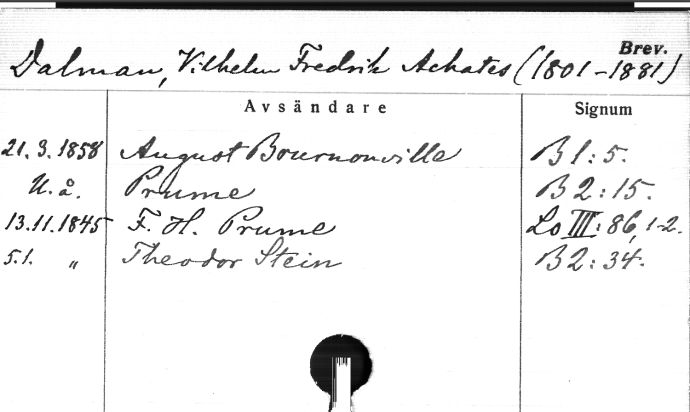 Brev.
Dalman, Vilhelm Fredrik Achates (1801-1881)
Avsändare Signum
21.3.1858 August Bournonville B 1:5.
U.å. Prume B 2:15.
13.11.1845 F. H. Prume Lo III:86,1-2.
5.1. " Theodor Stein B 2:34.